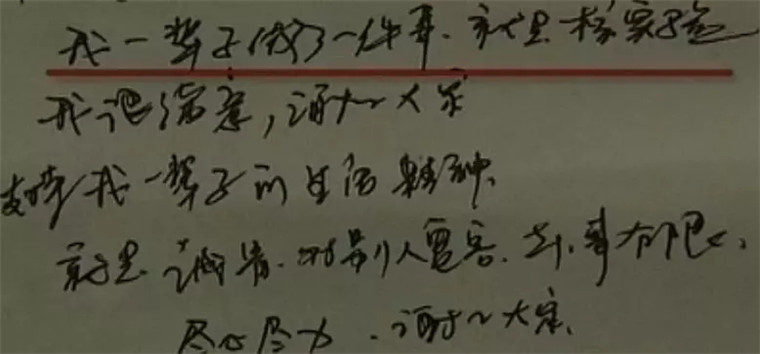 我一辈子做了一件事.就是核实验
我很满意,谢谢大家
支持我一辈子的生活精神,
就是诚肯.对别人宽容.事有恒心,
尽心尽力.谢谢大家.